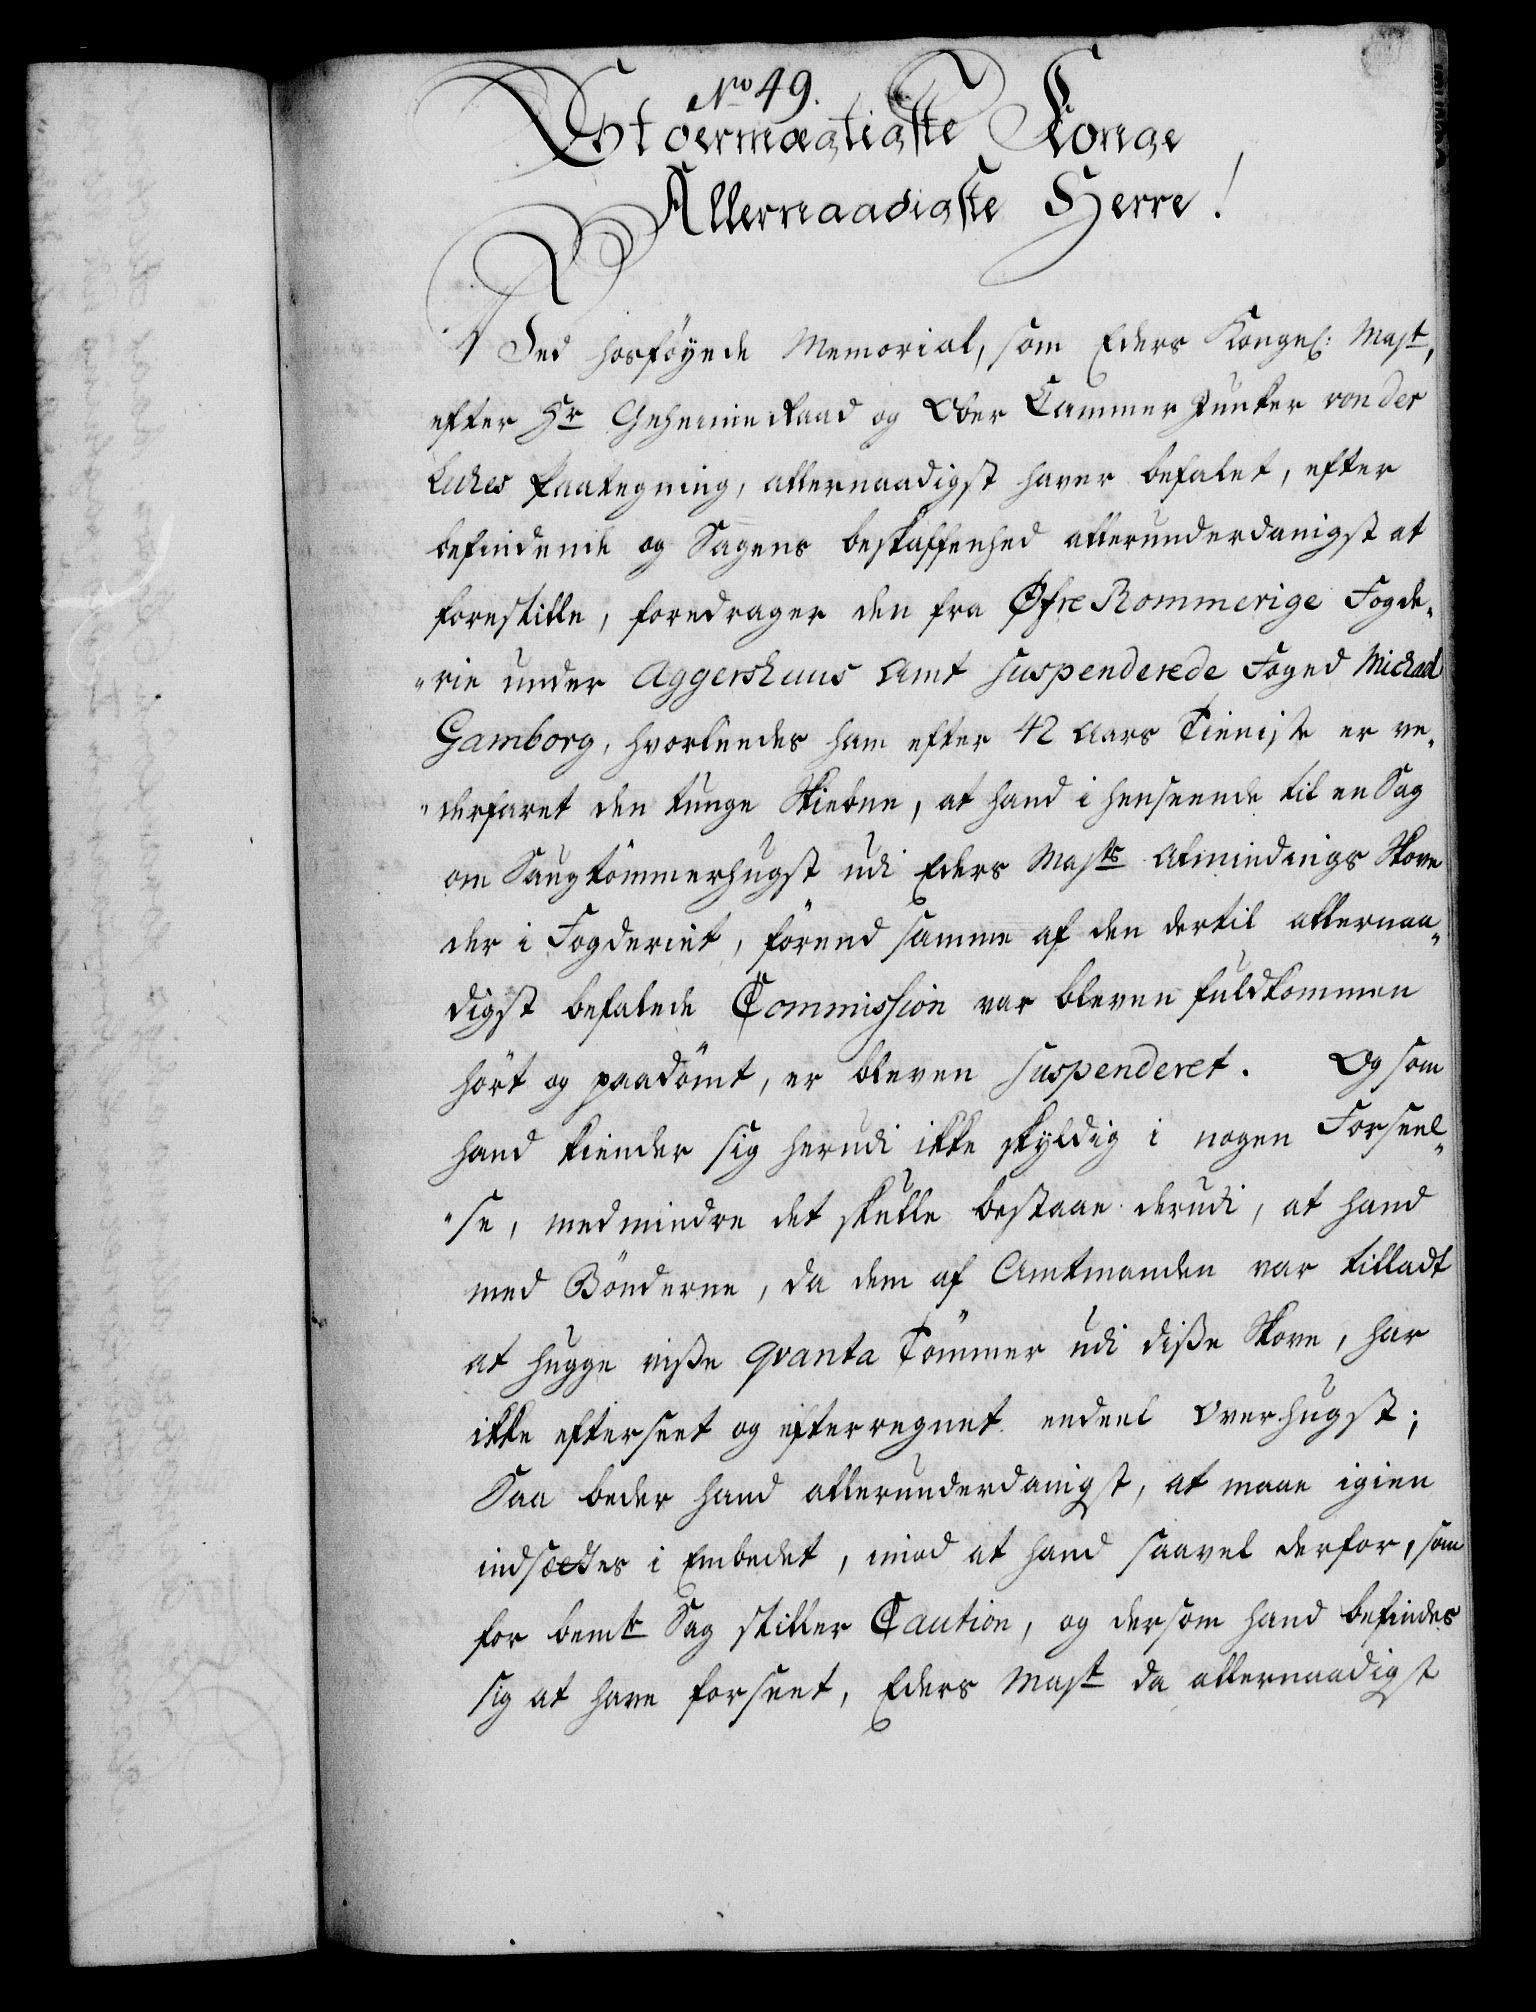 No 49.
Stoermægtigste Konge
Allernaadigste Herre!
Ved hosföyede Memorial, som Eders Kongel: Mayt,
efter Hr Geheime Raad og Ober Cammer Junker von der
Lühes Paategning, allernaadigst haver befalet, efter
befindende og Sagens beskaffenhed allerunderdanigst at
forestille, foredrager den fra Øfre Rommerige Fogde„
„rie under Aggershuus Amt suspenderede Foged Michael
Gamborg, hvorleedes ham efter 42 Aars Tieniste er ve„
„derfaret den tunge Skiebne, at hand i henseende til en Sag
om Saugtömmerhugst udi Eders Mayts Almindings Skove
der i Fogderiet, förend samme af den dertil allernaa„
digst befalede Commission var bleven fuldkommen
hört og paadömt, er bleven suspenderet. Og som
hand kiender sig herudi ikke skyldig i nogen Forseel„
„se, medmindre det skulle bestaae derudi, at hand
med Bönderne, da dem af Amtmanden var tilladt
at hugge visse qvanta Tömmer udi disse Skove, har
ikke efterseet og efterregnet endeel Overhugst;
Saa beder hand allerunderdanigst, at maae igien
indsættes i Embedet, imod at hand saavel derfor, som
for bemte Sag stiller Caution, og dersom hand befindes
sig at have forseet, Eders Mayt da allernaadigst